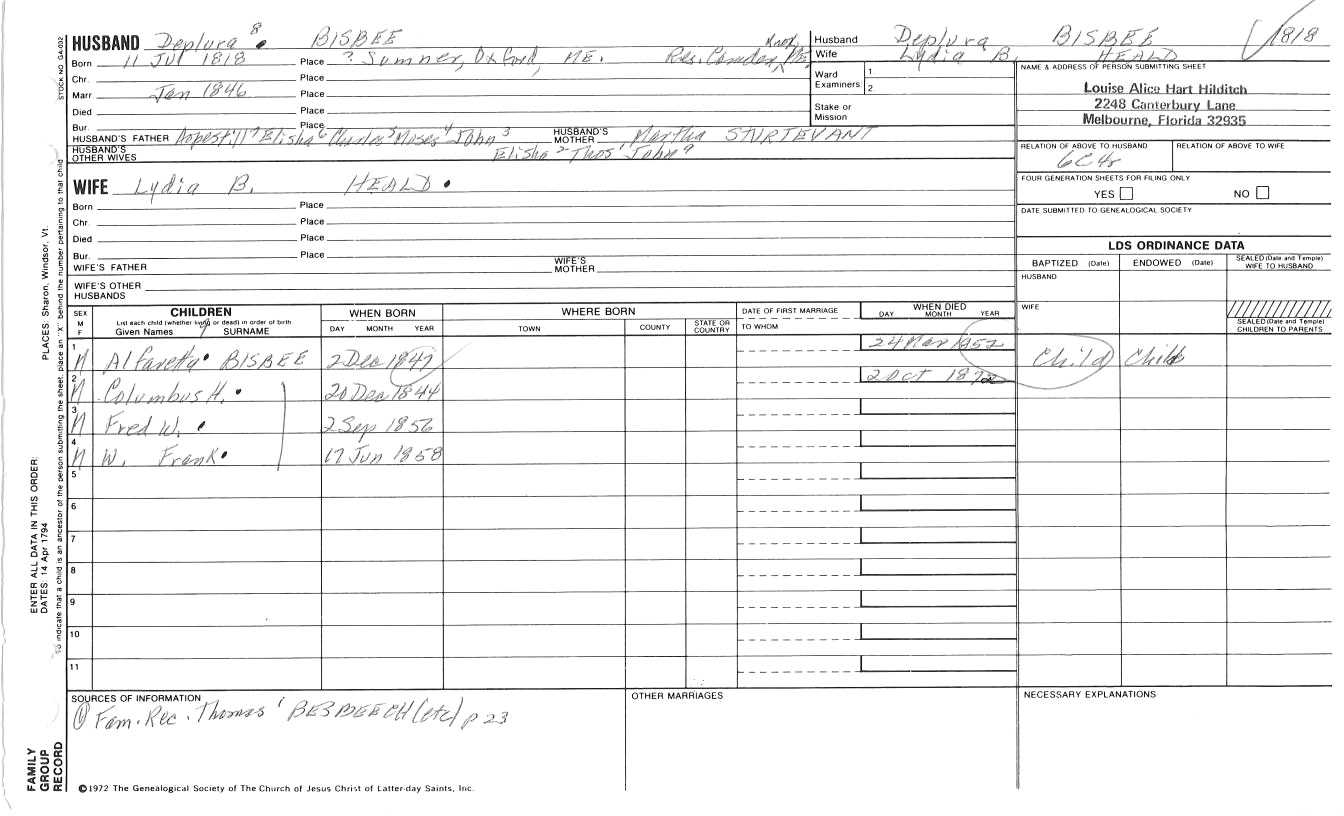 HUSBAND Deplura 8 BISBEE
Born 11 Jul 1818 Place ? Sumner, Oxford, ME. Res. Camden, Knox, ME.
Chr. Place
Marr Jan 1846 Place
Died Place
Bur. Place
HUSBAND'S FATHER Elisha 6 Charles 5 Moses 4 John 3 HUSBAND'S MOTHER Martha STURTEVANT
HUSBAND'S OTHER WIVES Elisha 2 Thos ' John a
WIFE Lydia B. HEALD
Born Place
Chr. Place
Died Place
Bur. Place
WIFE'S FATHER WIFE'S MOTHER
WIFE'S OTHER HUSBANDS
Husband Deplura BISBEE 1818
Wife Lydia B. HEALD
Ward Examiners 1 2
Stake or Mission
NAME & ADDRESS OF PERSON SUBMITTING SHEET
Louise Alice Hart Hilditch
2248 Canterbury Lane
Melbourne, Florida 32935
RELATION OF ABOVE TO HUSBAND RELATION OF ABOVE TO WIFE
6C4r
FOUR GENERATION SHEETS FOR FILING ONLY
YES NO
DATE SUBMITTED TO GENEALOGICAL SOCIETY
LDS ORDINANCE DATA
BAPTIZED (Date) ENDOWED (Date) SEALED (Date and Temple) WIFE TO HUSBAND
HUSBAND
WIFE
SEALED (Date and Temple) CHILDREN TO PARENTS
SEX M F CHILDREN WHEN BORN WHERE BORN DATE OF FIRST MARRIAGE WHEN DIED
List each child (whether living or dead) in order of birth
Given Names SURNAME DAY MONTH YEAR TOWN COUNTY STATE OR COUNTRY TO WHOM DAY MONTH YEAR
1 M Alfaretta BISBEE 2 Dec 1847 24 Mar 1852 Child Child
2 M Columbus H. 20 Dec 1844 2 Oct 1872
3 M Fred W. 2 Sep 1856
4 M W. Frank 17 Jun 1858
5
6
7
8
9
10
11
SOURCES OF INFORMATION OTHER MARRIAGES NECESSARY EXPLANATIONS
① Fam. Rec. Thomas ' BESBEECH (etc) p 23
©1972 The Genealogical Society of The Church of Jesus Christ of Latter-day Saints, Inc.
STOCK NO. GA-032
To indicate that a child is an ancestor of the person submitting the sheet, place an "X" behind the number pertaining to that child
ENTER ALL DATA IN THIS ORDER:
DATES: 14 Apr 1794 PLACES: Sharon, Windsor, Vt.
FAMILY GROUP RECORD